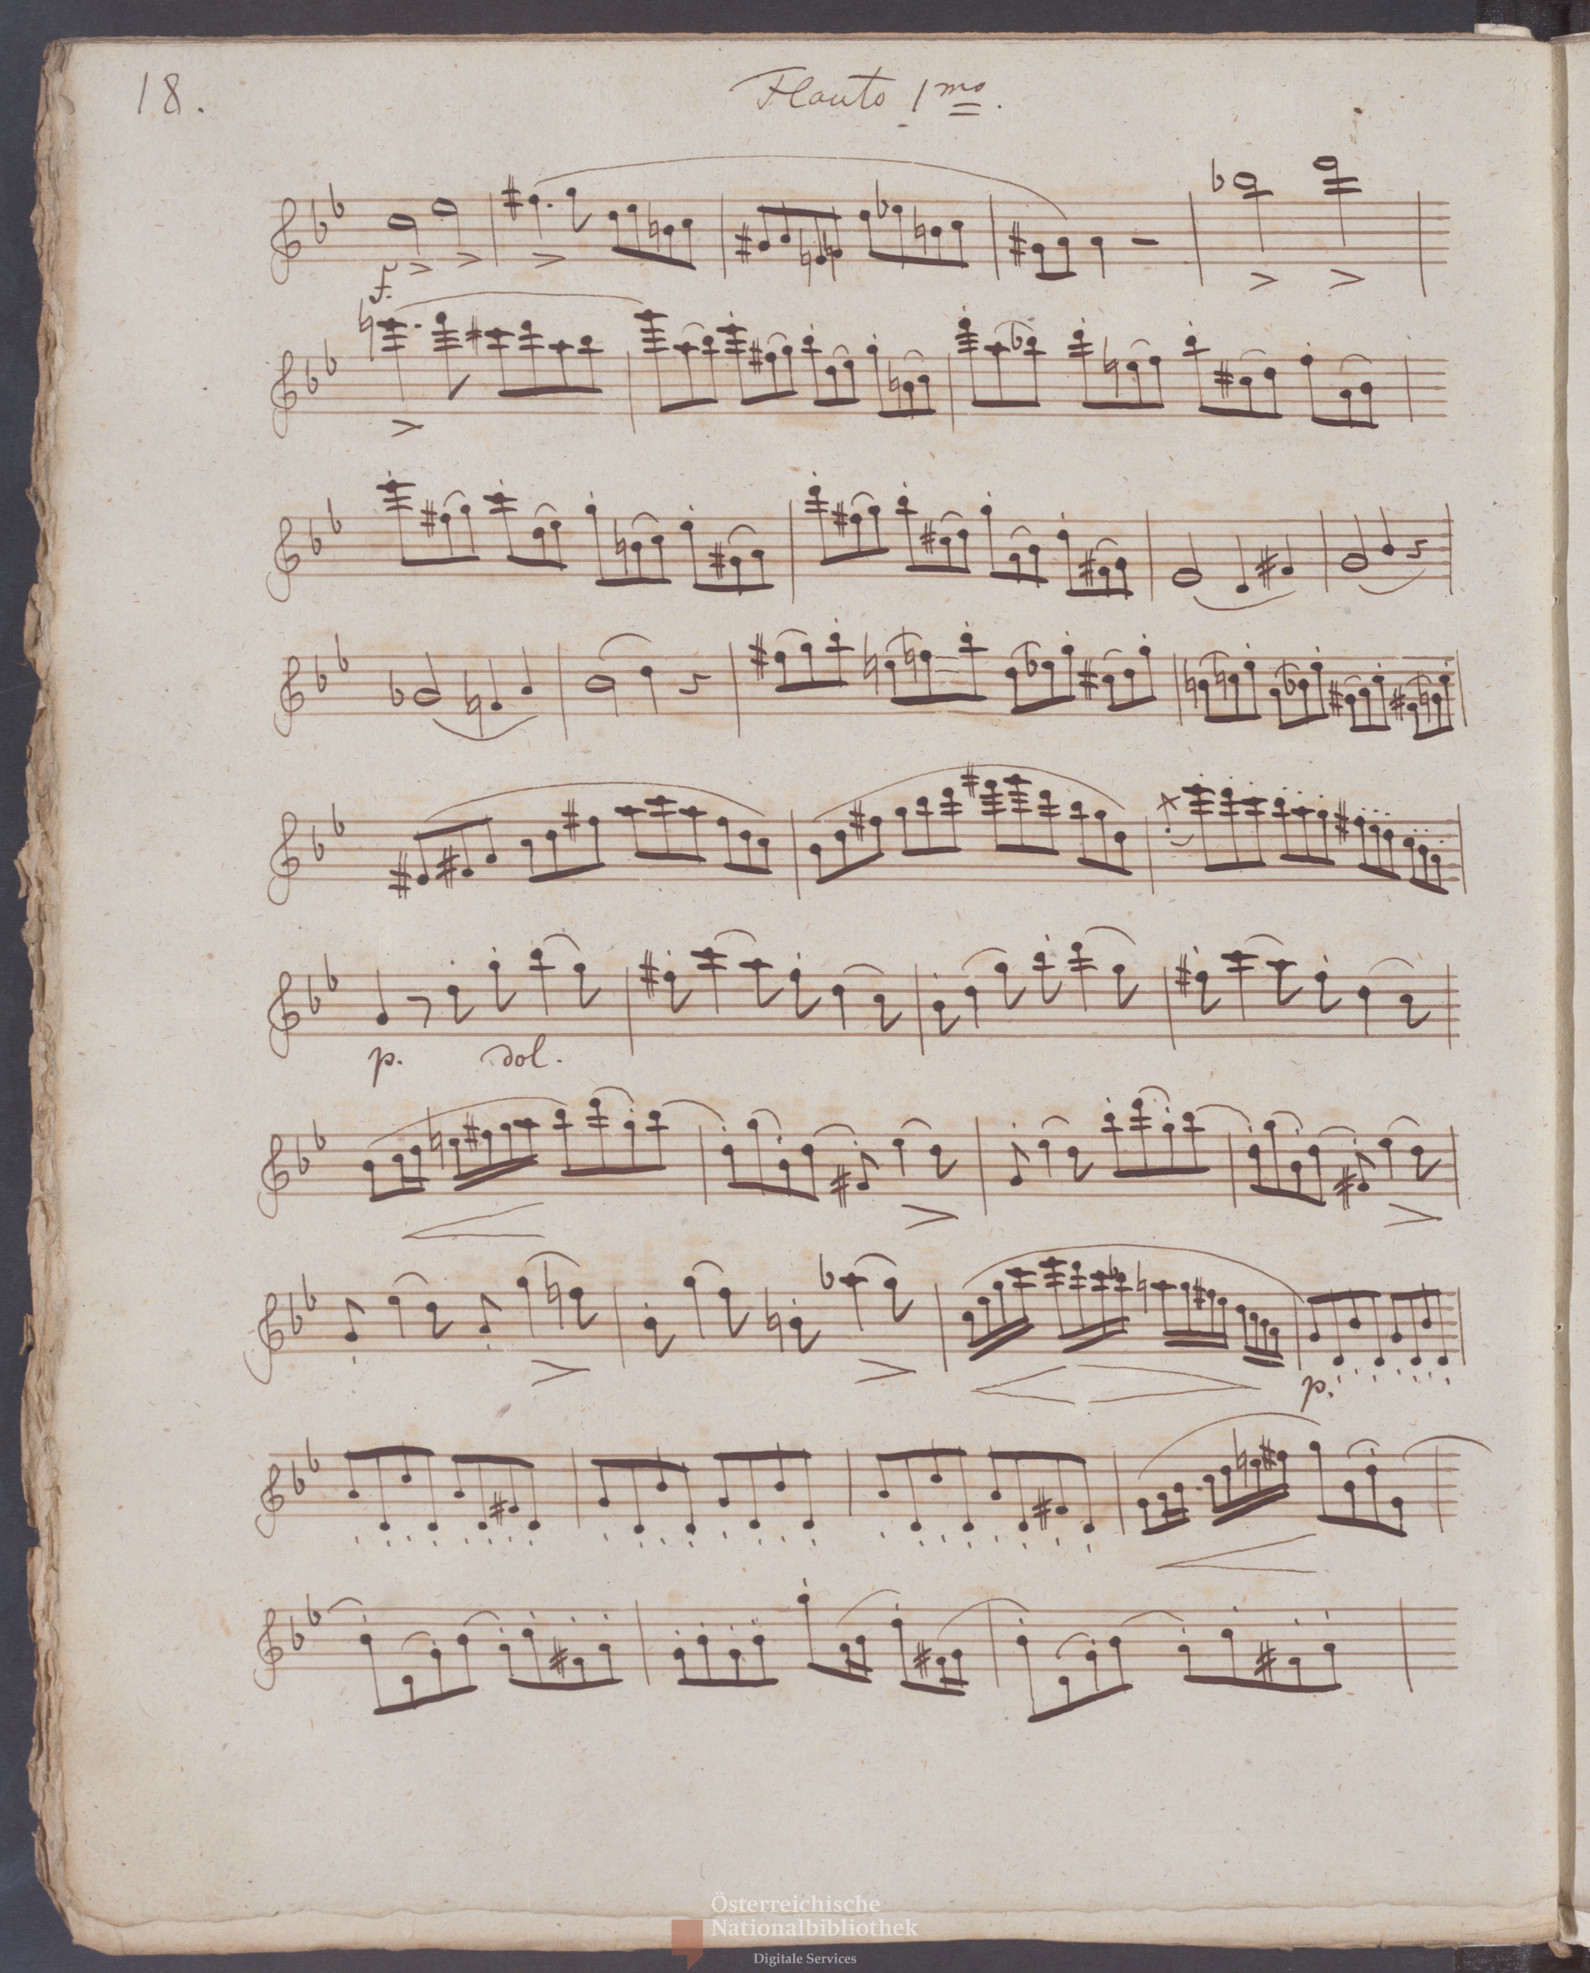 18.
Flauto 1mo.
f.
p. dol.
p.
Österreichische
Nationalbibliothek
Digitale Services